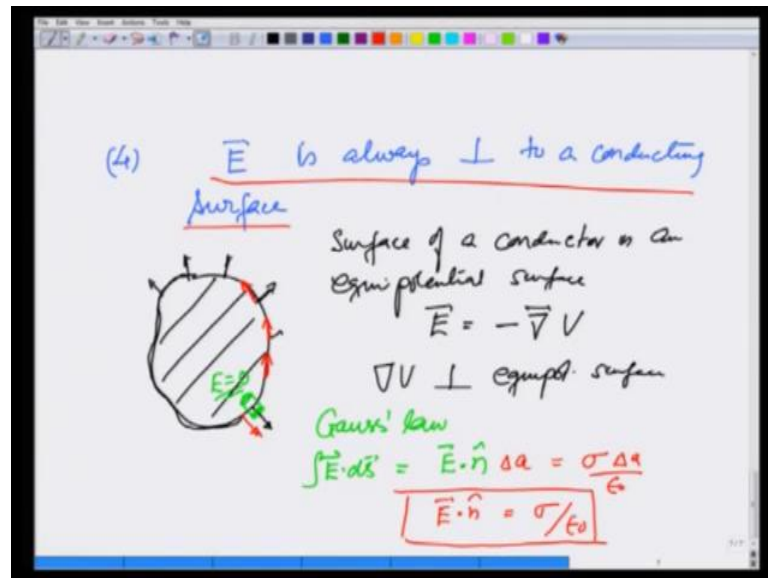 File Edit View Insert Actions Tools Help
(4) E is always ⊥ to a conducting
surface
Surface of a conductor is an
equipotential surface
E = - ∇ V
∇V ⊥ equipot. surface
E=0
Gauss' law
∫E·ds = E·n̂ Δa = σ Δa / ε0
E·n̂ = σ/ε0